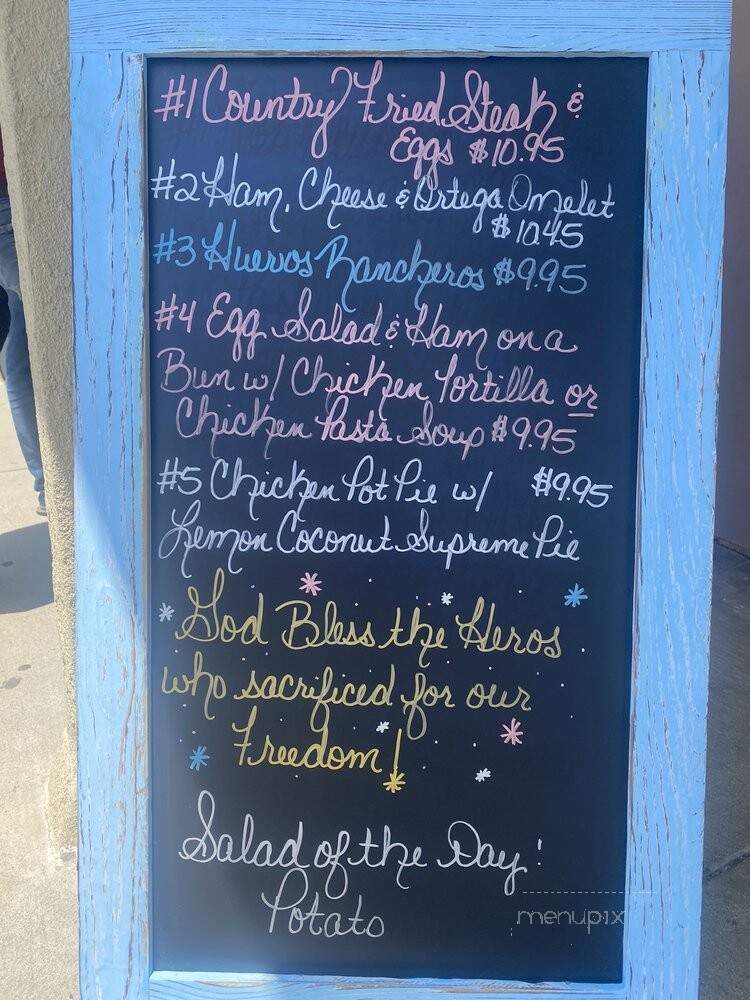 #1 Country Fried Steak &
Eggs $10.95
#2 Ham, Cheese & Ortega Omelet
$10.45
#3 Huevos Rancheros $9.95
#4 Egg Salad & Ham on a
Bun w/ Chicken Tortilla or
Chicken Pasta Soup $9.95
#5 Chicken Pot Pie w/ $9.95
Lemon Coconut Supreme Pie
God Bless the Heros
who sacrificed for our
Freedom!
Salad of the Day!
Potato
menupix